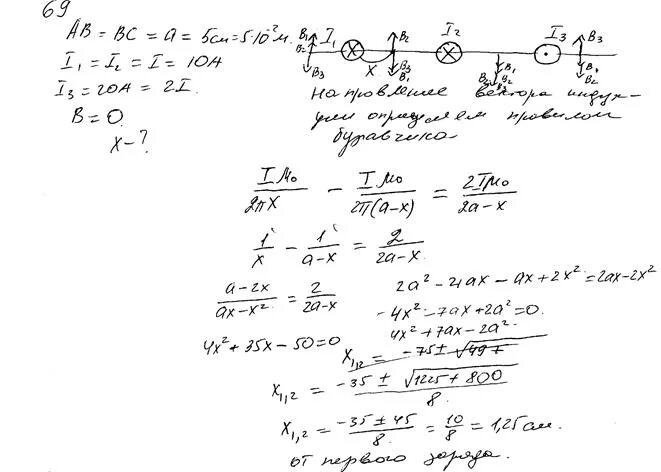 69
AB = BC = a = 5см = 5·10⁻² м.
I₁ = I₂ = I = 10A
I₃ = 20A = 2I.
B = 0.
x - ?
B₁ B₂ I₁ B₂ I₂ I₃ B₃
B₃ X B₃ B₁ B₃ B₁ B₂ B₁ B₂
направление вектора индук-
ции определяем правилом
буравчика
Iμ₀/2πx − Iμ₀/2π(a−x) = 2Iμ₀/2a−x
1/x − 1/a−x = 2/2a−x
a−2x/ax−x² = 2/2a−x
2a² − 4ax − ax + 2x² = 2ax − 2x²
4x² − 7ax + 2a² = 0.
4x² + 7ax − 2a²
4x² + 35x − 50 = 0
x₁,₂ = −75 ± √49
x₁,₂ = −35 ± √1225 + 800/8.
x₁,₂ = −35 ± 45/8. = 10/8 = 1,25 см.
от первого заряда.